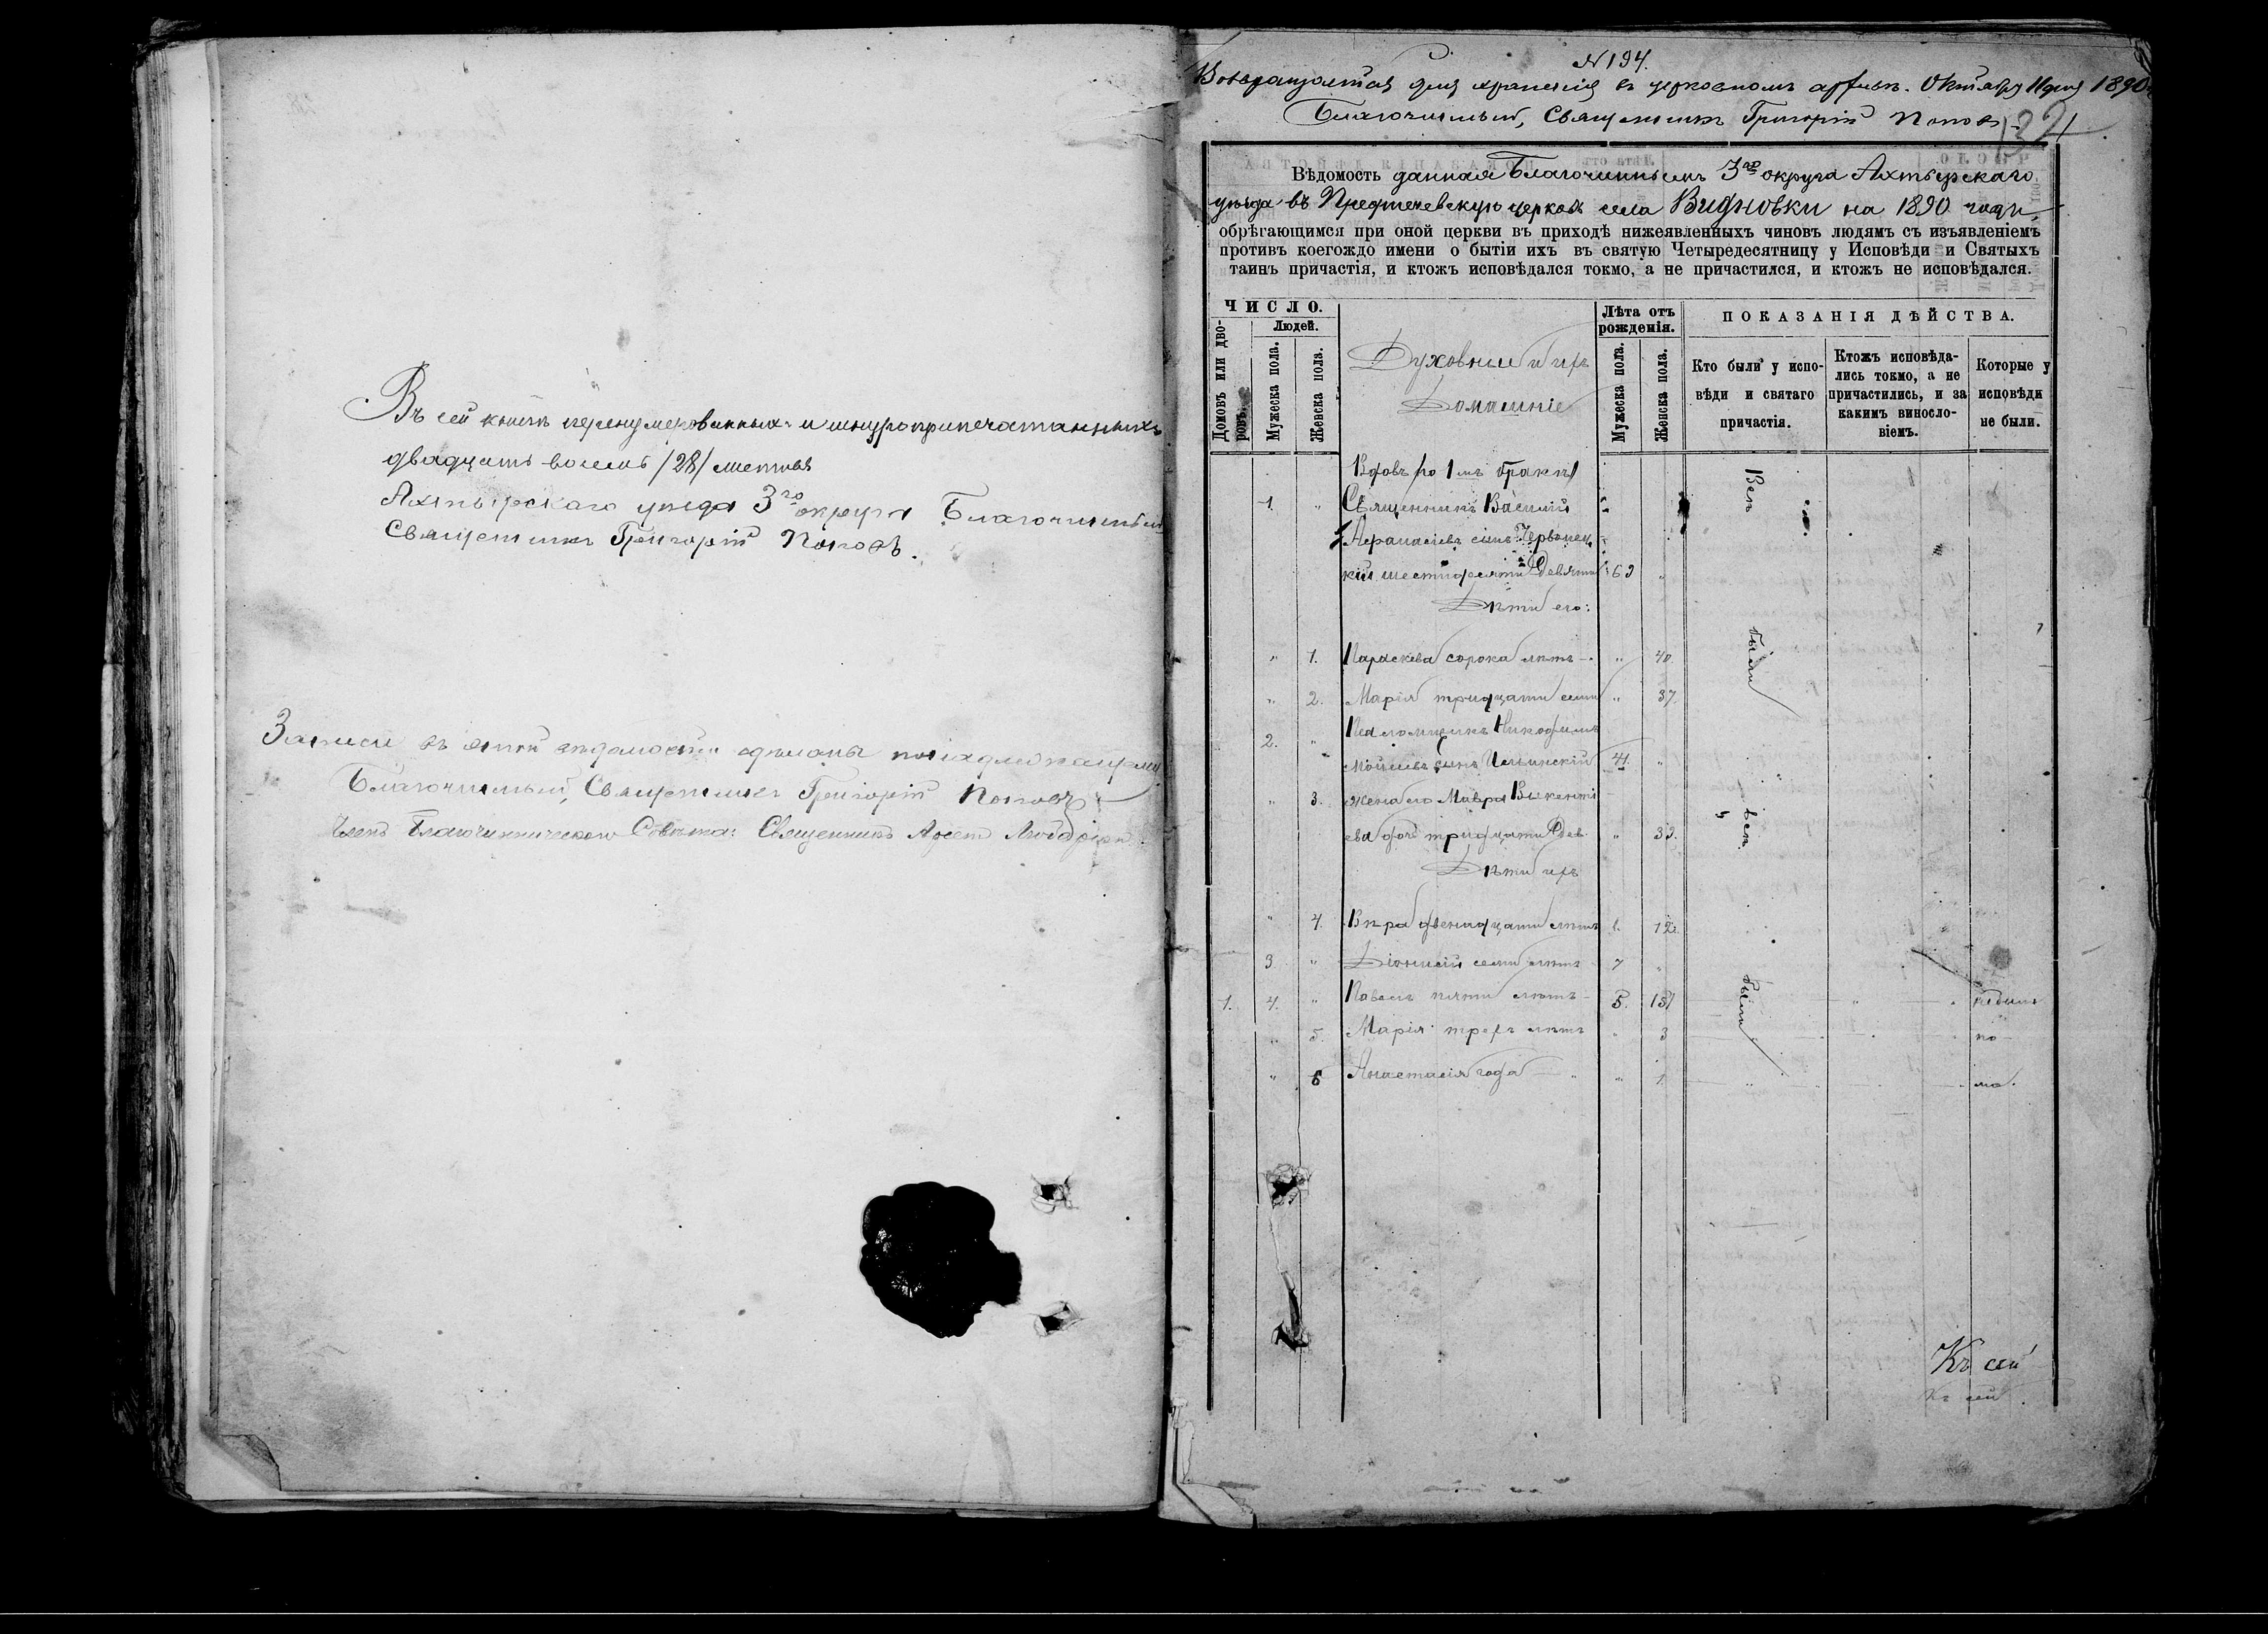 Въ сей книгѣ перенумерованныхъ и шнуроприпечатанныхъ
двадцать восемь /28/ листовъ
Ахтырскаго уѣзда 3го округа Благочинный
Священникъ Григорій Поповъ.
Записи въ этой вѣдомости сдѣланы
Благочинный, Священникъ Григорій Поповъ
Членъ Благочинническаго Совѣта: Священникъ
№ 194.
Возвращается для храненія въ церковномъ архивѣ. Октября 11 дня 1890
Благочинный, Священникъ Григорій Поповъ
Вѣдомость данная Благочиннымъ 3го округа Ахтырскаго
уѣзда въ Предтечевскую церковь села Видновки на 1890 годъ,
обрѣтающимся при оной церкви въ приходѣ нижеявленныхъ чиновъ людямъ съ изъявленіемъ
противъ коегождо имени о бытіи ихъ въ святую Четыредесятницу у Исповѣди и Святыхъ
таинъ причастія, и ктожъ исповѣдался токмо, а не причастился, и ктожъ не исповѣдался.
ЧИСЛО.
Домовъ или дворовъ.
Людей.
Мужеска пола.
Женска пола.
Духовные и ихъ
Домашніе
Лѣта отъ
рожденія.
Мужеска пола.
Женска пола.
ПОКАЗАНІЯ ДѢЙСТВА.
Кто были у испо-
вѣди и святаго
причастія.
Ктожъ исповѣда-
лись токмо, а не
причастились, и за
какимъ виносло-
віемъ.
Которые у
исповѣди
не были.
Вдовъ по 1мъ бракѣ
1. " Священникъ Василій
Аѳанасіевъ сынъ Червонец
кій шестидесяти девяти 69 "
Дѣти его:
" 1. Параскева сорока лѣтъ " 40
" 2. Марія тридцати семи " 37
2. " Псаломщикъ Никодимъ
Моисіевъ сынъ Ильинскій 41 "
" 3. Жена его Мавра Викенті
ева дочь тридцати дев " 39.
Дѣти ихъ
" 4. Вѣра двенадцати лѣтъ 12.
3. " Діонисій семи лѣтъ 7 "
1. 4. " Павелъ пяти лѣтъ 5. не были
" 5. Марія трехъ лѣтъ " 3 по
" 6 Анастасія года " 1 ма.
Всѣ
были
всѣ
были
Къ сей
Къ сей